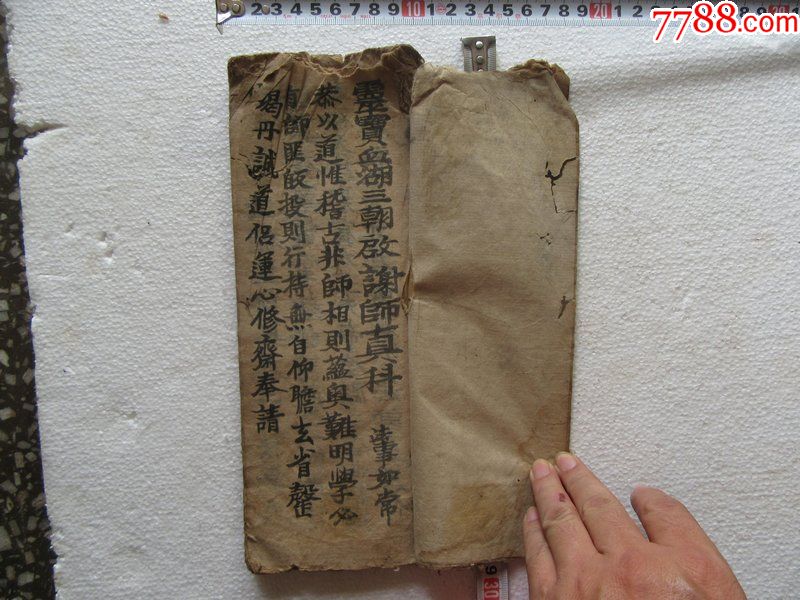 7788.com
靈寶血湖三朝啟謝師真科 法事如常
恭以道惟稽古非師相則蘊奧難明學必
有師匪皈投則行持無自仰瞻玄省罄
竭丹誠道侶運心修齋奉請